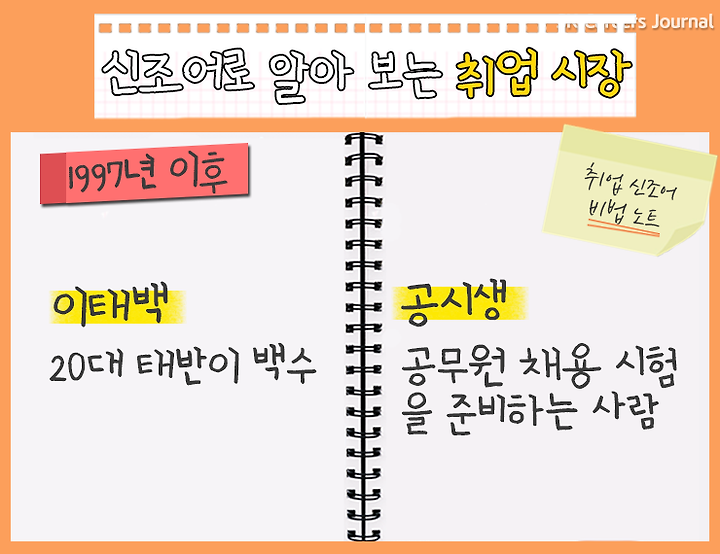 Journal
신조어로 알아 보는 취업 시장
1997년 이후
취업 신조어
비법 노트
이태백
20대 태반이 백수
공시생
공무원 채용 시험
을 준비하는 사람